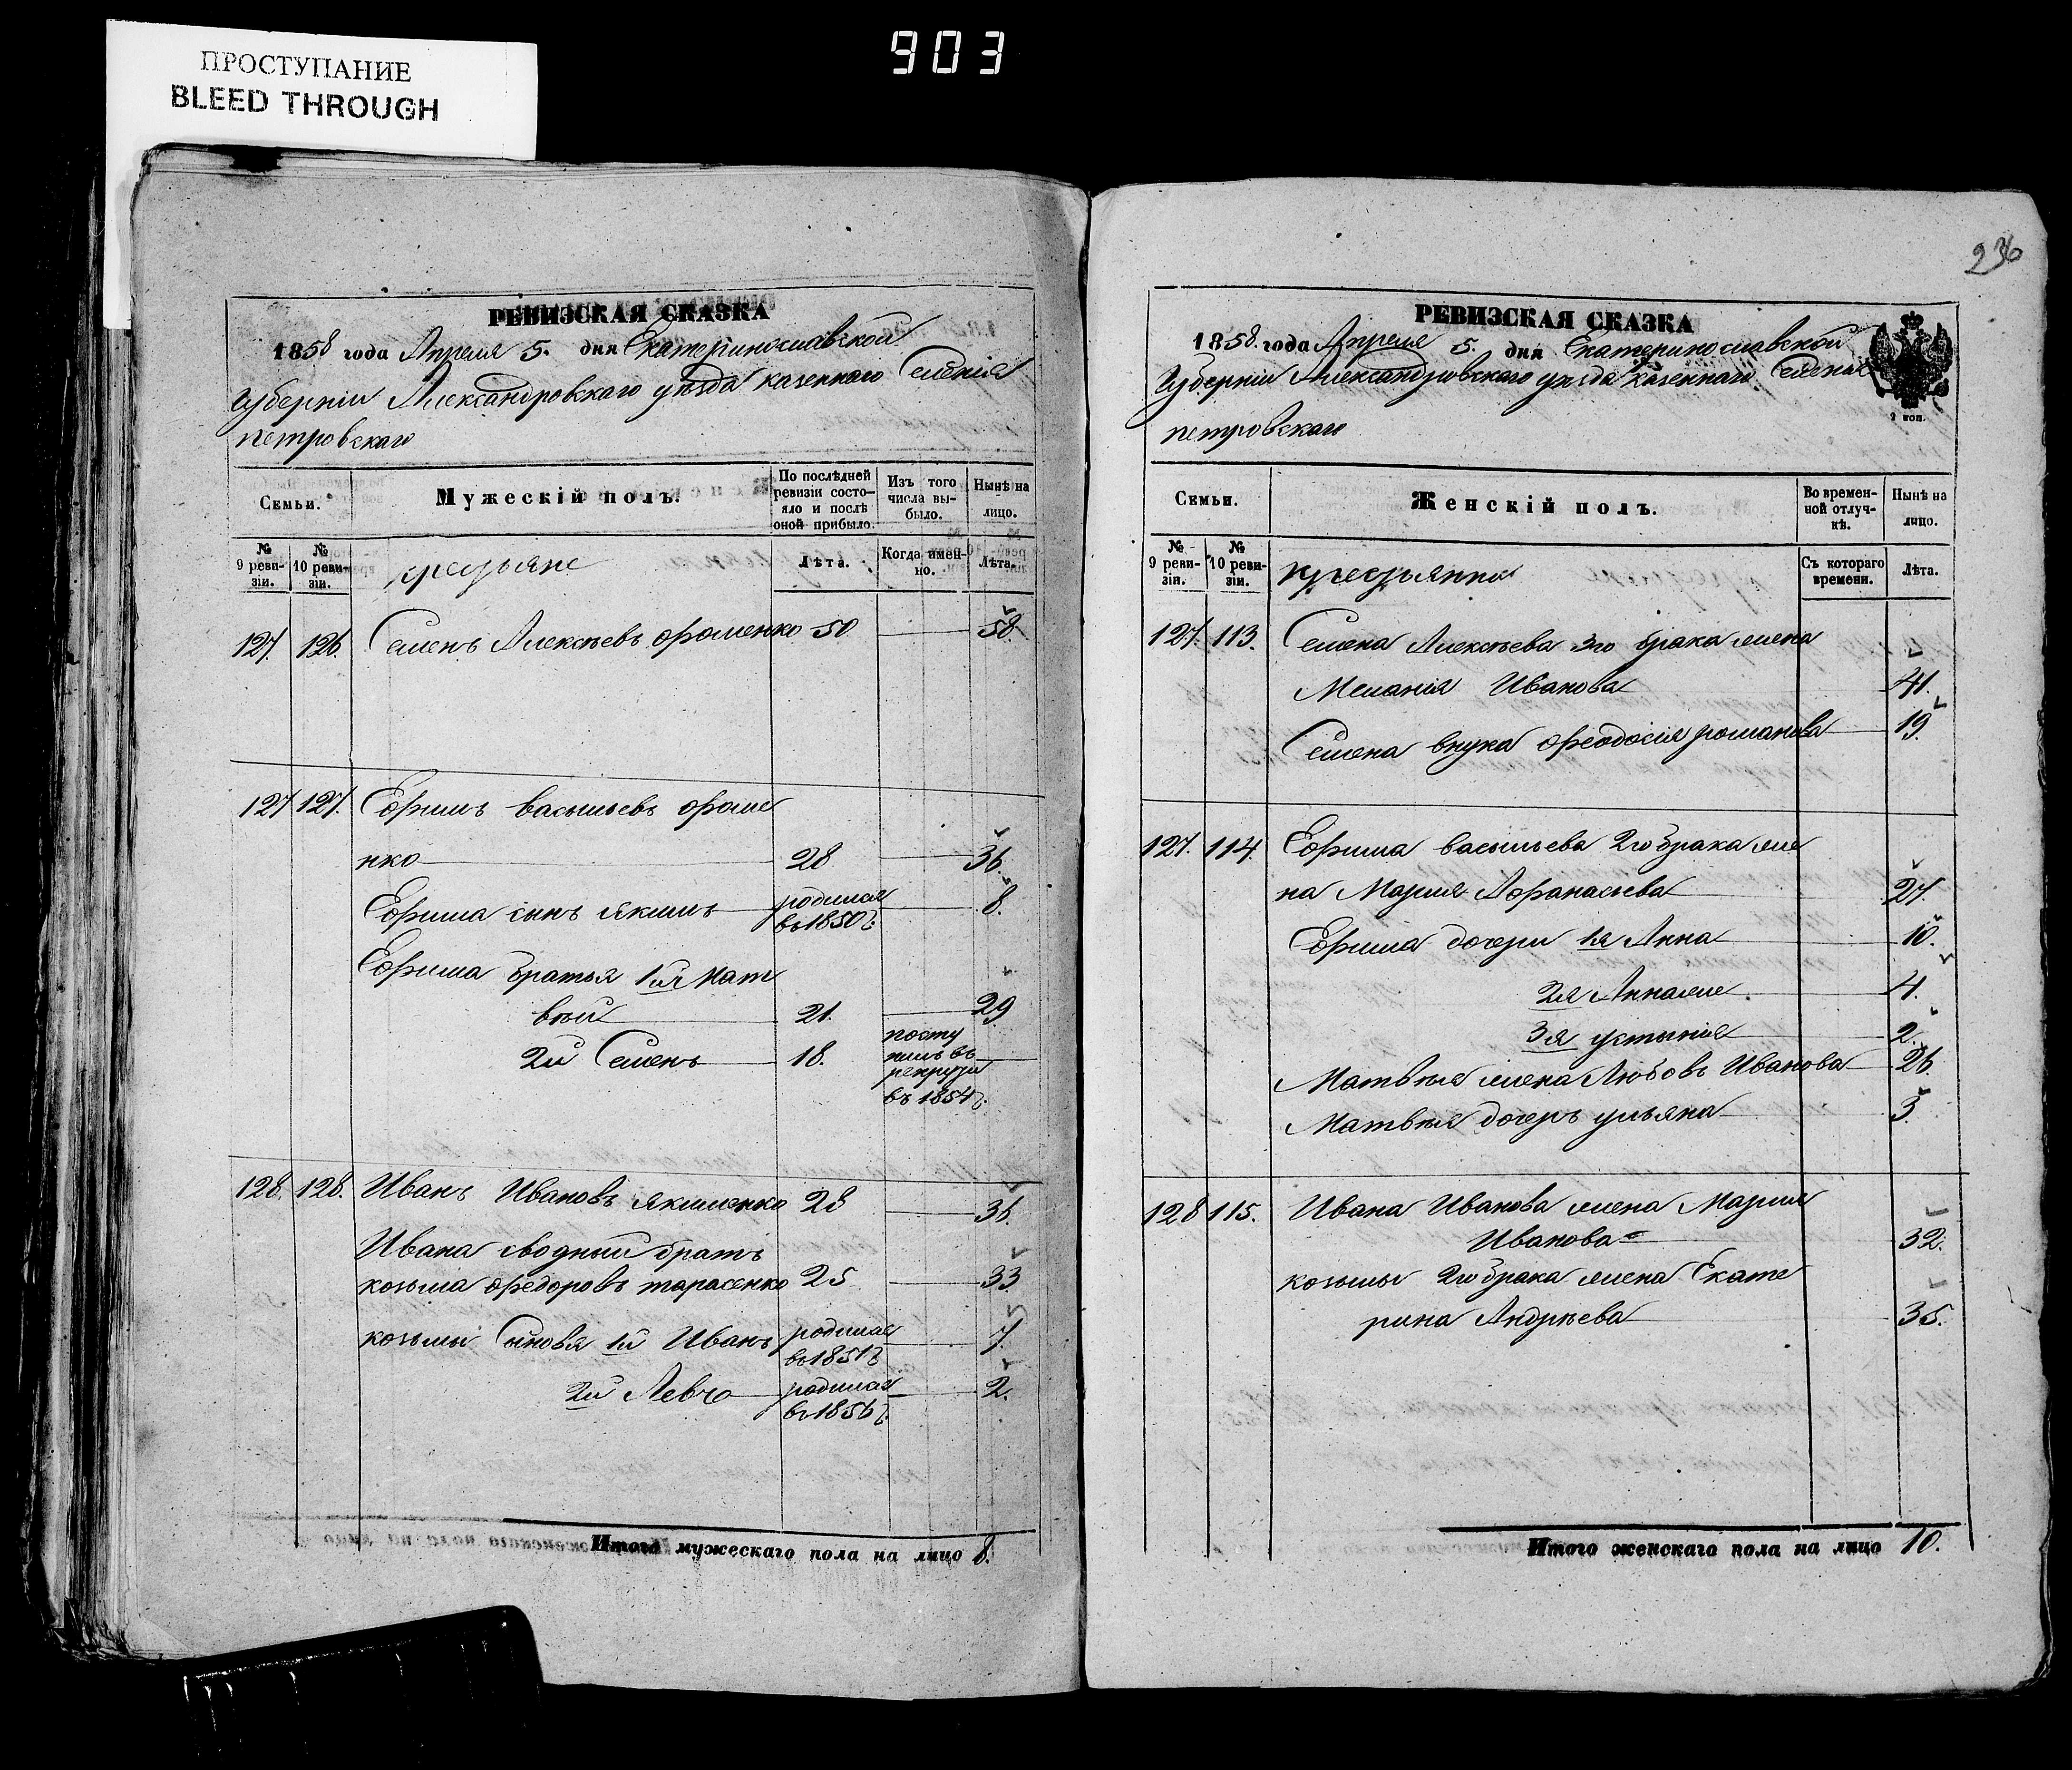 903
ПРОСТУПАНИЕ
BLEED THROUGH
РЕВИЗСКАЯ СКАЗКА
1858 года Апреля 5. дня Екатеринославской
Губерніи Александровскаго уѣзда казеннаго Селенія
петровскаго
Семьи.
Мужескій полъ.
По послѣдней ревизіи состояло и послѣ оной прибыло.
Изъ того числа выбыло.
Нынѣ на лицо.
№ 9 ревизіи.
№ 10 ревизіи.
крестьяне
Лѣта.
Когда именно.
Лѣта.
127. 126. Семенъ Алексѣевъ фоменко 50 58.
127 127. Ефимъ васильевъ фоме
нко 28 36.
Ефима сынъ якимъ родился в 1850 г. 8.
Ефима братья 1й Мат
вѣй 21. 29
2й Семенъ 18. посту
пилъ въ
рекруты
въ 1854 г.
128. 128. Иванъ Ивановъ якименко 28 36.
Ивана сводный братъ
козьма федоровъ тарасенко 25 33
козьмы Сыновья 1й Иванъ родился в 1851 г. 7.
2й Левко родился в 1856 г. 2.
Итого мужескаго пола на лицо 8.
236
РЕВИЗСКАЯ СКАЗКА
1858. года Апреля 5. дня Екатеринославской
Губерніи Александровскаго уѣзда казеннаго Селенія
петровскаго
2 коп.
Семьи.
Женскій полъ.
Во временной отлучкѣ.
Нынѣ на лицо.
№ 9 ревизіи.
№ 10 ревизіи.
крестьянки
Съ котораго времени.
Лѣта.
127. 113. Семена Алексѣева 3го брака жена
Меланія Иванова 41.
Семена внука феодосія романова 19.
127. 114. Ефима васильева 2го брака же
на Марія Афанасьева 27.
Ефима дочери 1я Анна 10.
2я Анна же 4.
3я устинія 2.
Матвѣя жена Любовь Иванова 26
Матвѣя дочерь ульяна 3.
128 115. Ивана Иванова жена Марія
Иванова 32.
козьмы 2го брака жена Екате
рина Андрѣева 35.
Итого женскаго пола на лицо 10.